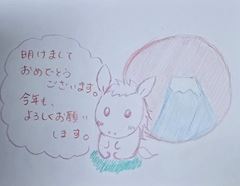 明けまして
おめでとう
ございます。
今年も、
よろしくお願い
します。